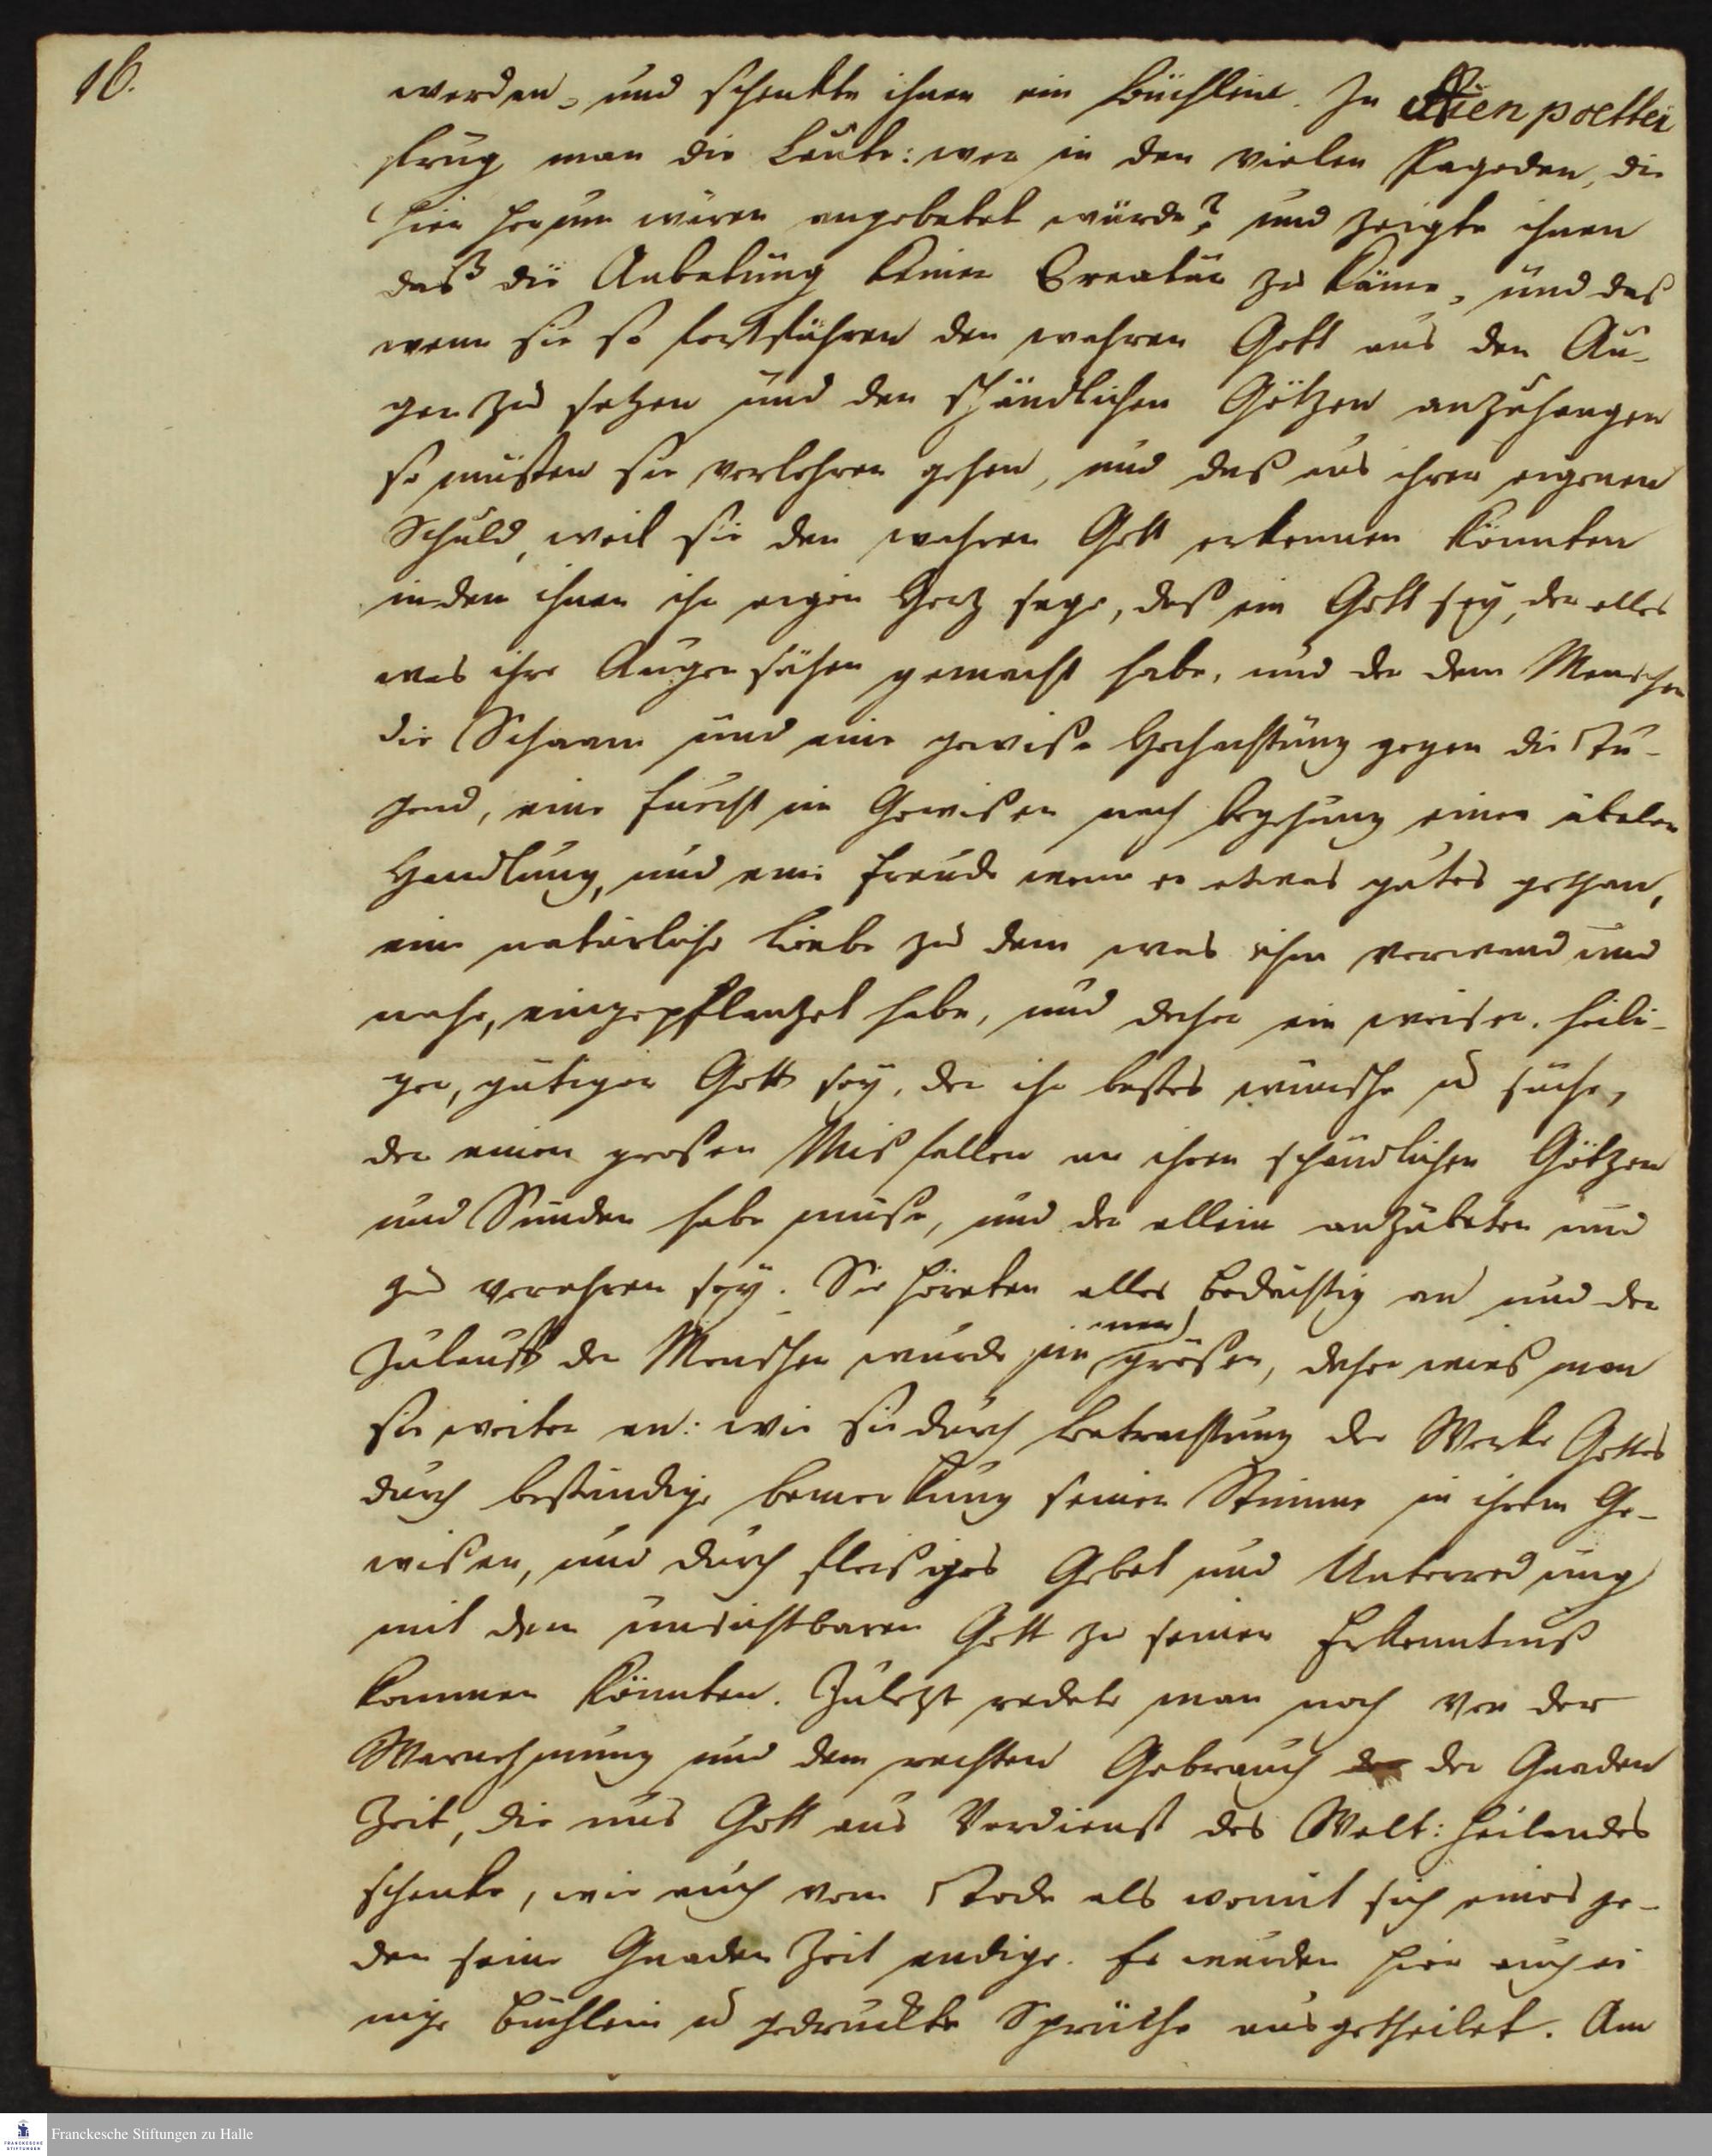 16.
werden, und schenkte ihnen ein Büchlein. In Aienpoettei
frug man die Leute: wer in den vielen Pagoden, die
hier herum wären angebetet würde? und zeigte ihnen
daß die Anbetung keiner Creatur zu käme, und daß
wenn sie so fortführen den wahren Gott aus den Au-
gen zu setzen und den schändlichen Götzen anzuhangen
so müßten sie verlohren gehen, und das aus ihrer eigenen
Schuld, weil sie den wahren Gott erkennen könnten
indem ihnen ihr eigen Herz sage, daß ein Gott sey, der alles
was ihre Augen sähen gemacht habe, und der dem Menschen
die Schaam und eine gewiße Hochachtung gegen die Tu-
gend, eine Furcht im Gewißen nach Begehung einer übelen
Handlung, und eine Freude wenn er etwas gutes gethan,
eine natürliche Liebe zu dem was ihm verwand und
nahe, eingepflanzet habe, und daher ein weiser, heili-
ger, gütiger Gott sey, der ihr bestes wünsche u suche,
der einen großen Mißfallen an ihren schändlichen Götzen
und Sünden habe müße, und der allein anzubeten und
zu verehren sey. Sie höreten alles bedächtig an und der
Zulauff der Menschen wurde im mer größer, daher wies man
sie weiter an: wie sie durch Betrachtung der Werke Gottes
durch beständige Bemerkung seiner Stimme in ihrem Ge-
wißen, und durch fleißiges Gebet und Unterredung
mit dem unsichtbaren Gott zu seiner Erkenntniß
kommen könnten. Zuletzt redete man noch von der
Warnehmung und dem rechten Gebrauch der Gnaden
Zeit, die uns Gott aus Verdienst des Welt: Heilandes
schenke, wie auch vom Tode als womit sich eines je-
den seine Gnaden Zeit endige. Es wurden hier auch ei
nige Büchlein u gedruckte Sprüche ausgetheilet. Am
Franckesche Stiftungen zu Halle